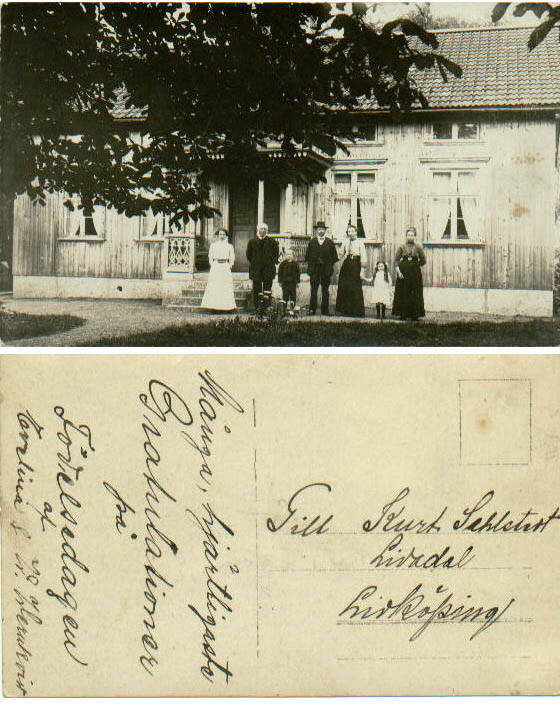 Många, hjärtligaste
Gratulationer
på
Födelsedagen
af
Till Kurt Sahlstedt
Lidadal
Lidköping